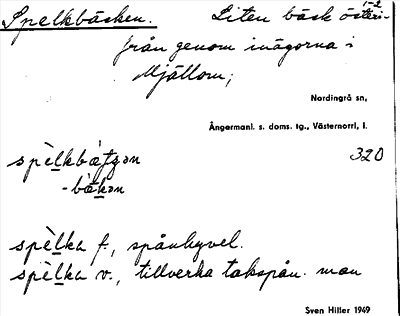 Spelkbäcken. Liten bäck österi-
från genom inägorna i
Mjällom;
Nordingrå sn,
Ångermanl. s. doms. tg., Västernorrl. l.
spèlkbæ̀tʃən 320
-bæ̀kən
spèlka f., spånhyvel.
spèlka v., tillverka takspån. man
Sven Hiller 1949